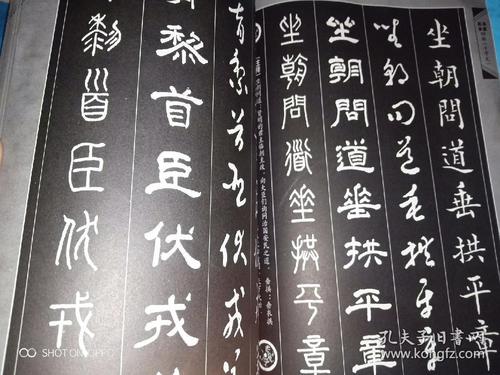 坐朝問道垂拱平章
坐朝問道垂拱平章
坐朝問道垂拱平章
坐朝問道垂拱平章
向大臣们询问治国安民之道。
育黎首臣伏戎
黎首臣伏戎
黎首臣伏戎
SHOT ON OPPO
孔夫子旧书网
www.kongfz.com